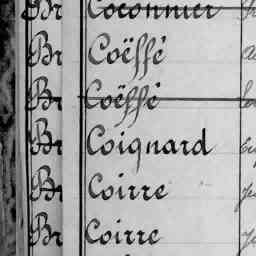 Br Coconnier
Br Coëffé
Br Coëffé
Br Coignard
Br Coirre
Br Coirre